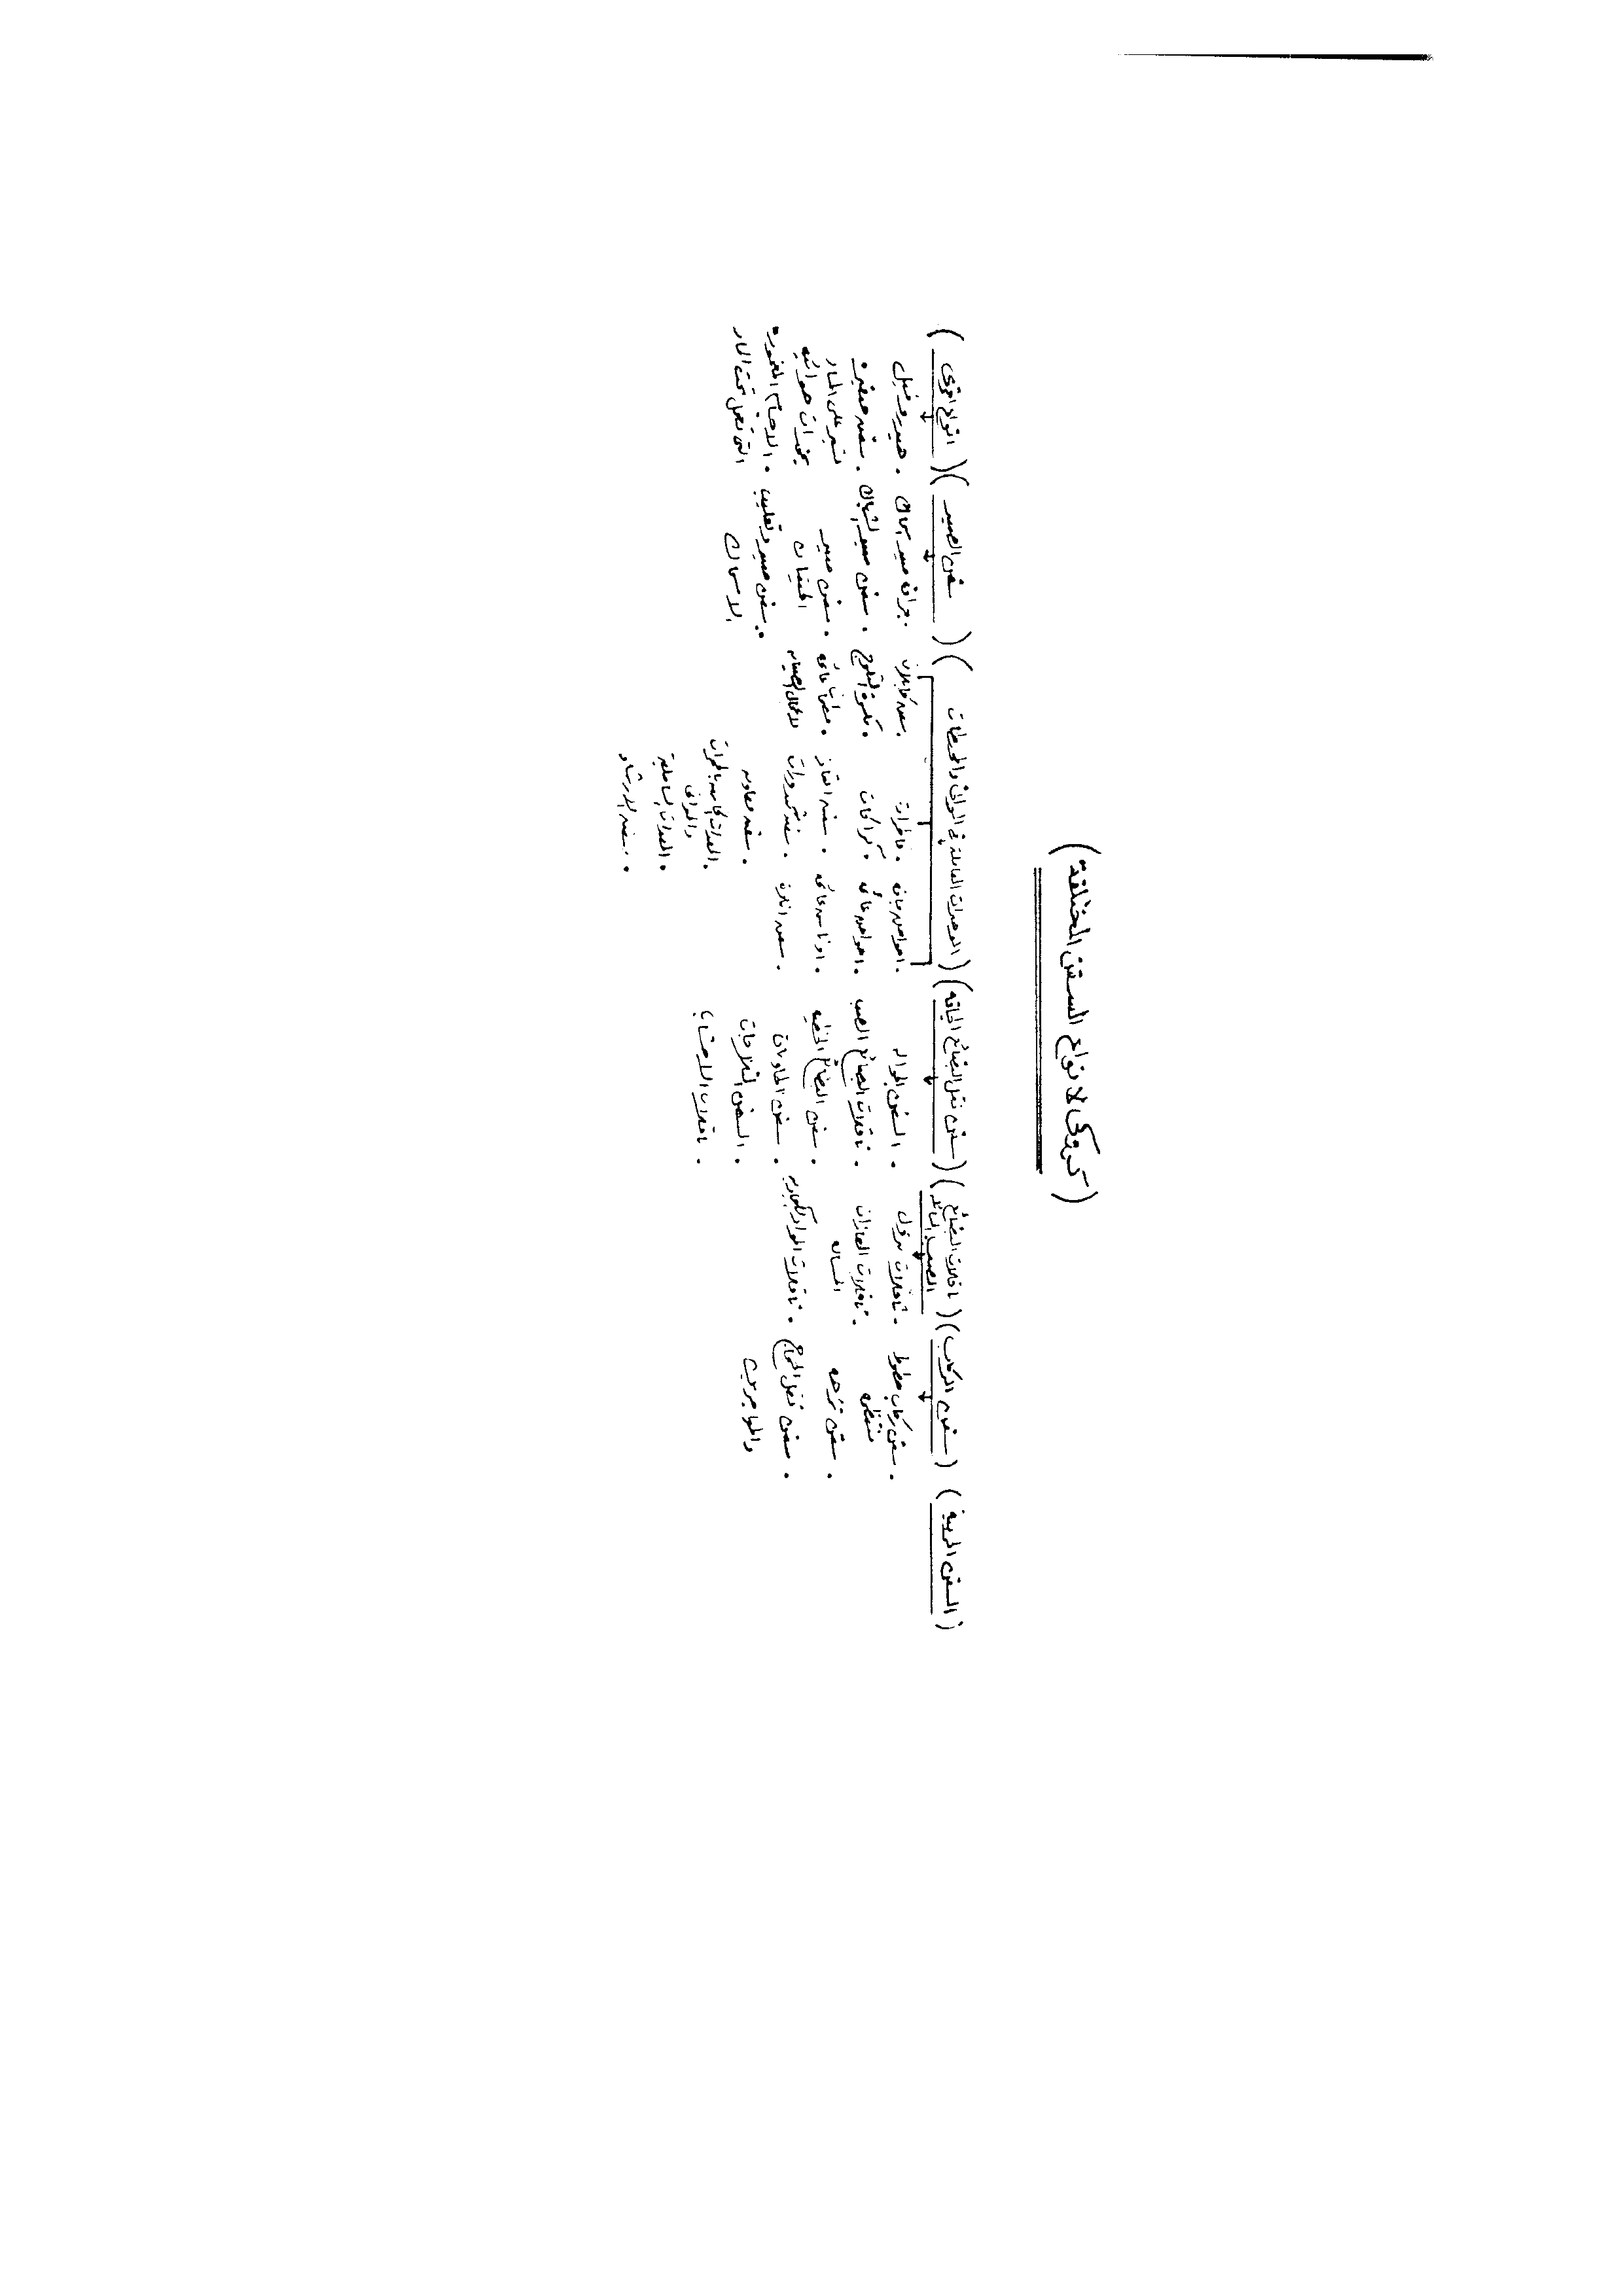 (كروكى لانواع السفن المختلفة)
(السفن الحربية)
(سفن الركاب)
. سفن ركاب خطوط
منتظمه
. سفن نزهه
. سفن نقل الحجاج
والمهاجرين
(ناقلات البضائع
الصب السائله)
. ناقلات بترول
. ناقلات الغازات
المساله
. ناقلات المواد الكيماويه
(سفن نقل البضائع الجافه)
. السفن الجواله
. ناقلات البضائع الصب
. سفن البضائع الخطيه
. سفن الحاويات
. السفن الثلاجات
. ناقلات الاخشاب
(الوحدات العاملة في الموانى والمحيطات)
. احواض جافه
. احواض عائمه
. اوناش عائمه
. سفن اناره
. قاطرات
. كراكات
. سفن انقاذ
. سفن شمندورات
. سفن معاونه
والموانى
. المعدات الساحلية
. سفن الارشاد
. سفن كابلات
. كاسرة الثلوج
. منصات عائمه
لاعمال الصيانه
(سفن الصيد)
. جرافه صيد اسماك
. سفن صيد بالشباك
. سفن صيد
الحيتان
. سفن صيد وتعليب
الاسماك
(انواع اخرى)
. هيدروفيل
. سفن صغيره
تسير على الماء
بمخدات هوائيه
. الاجسام المغموره
التى تعمل تحت الماء